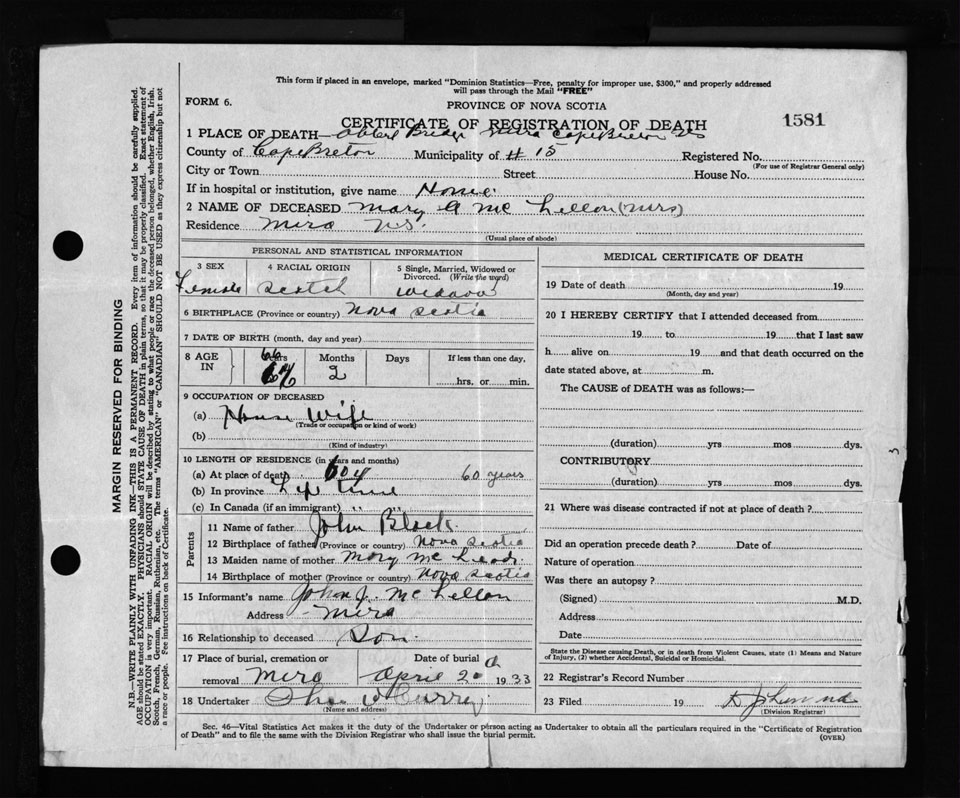 This form if placed in an envelope, marked "Dominion Statistics—Free, penalty for improper use, $300," and properly addressed
will pass through the Mail "FREE"
FORM 6.
PROVINCE OF NOVA SCOTIA
CERTIFICATE OF REGISTRATION OF DEATH
1581
1 PLACE OF DEATH— Bridge Mira Cape Breton NS
County of Cape Breton Municipality of # 15 Registered No.
(For use of Registrar General only)
City or Town Street House No.
If in hospital or institution, give name Home
2 NAME OF DECEASED Mary A Mc Lellon (Mrs)
Residence Mira N.S.
(Usual place of abode)
PERSONAL AND STATISTICAL INFORMATION
3 SEX 4 RACIAL ORIGIN 5 Single, Married, Widowed or
Divorced. (Write the word)
Female Scotch Widow
6 BIRTHPLACE (Province or country) Nova Scotia
7 DATE OF BIRTH (month, day and year)
8 AGE IN Years Months Days If less than one day,
66 2 hrs, or min.
9 OCCUPATION OF DECEASED
(a) House Wife
(Trade or occupation or kind of work)
(b)
(Kind of industry)
10 LENGTH OF RESIDENCE (in years and months)
(a) At place of death 60 years
(b) In province Life time
(c) In Canada (if an immigrant) " "
Parents
11 Name of father John Black
12 Birthplace of father (Province or country) Nova Scotia
13 Maiden name of mother Mary Mc Leod
14 Birthplace of mother (Province or country) Nova Scotia
15 Informant's name John J. Mc Lellon
Address Mira
16 Relationship to deceased Son
17 Place of burial, cremation or Date of burial
removal Mira April 20 1933
18 Undertaker Curry
(Name and address)
MEDICAL CERTIFICATE OF DEATH
19 Date of death 19
(Month, day and year)
20 I HEREBY CERTIFY that I attended deceased from
19 to 19 that I last saw
h alive on 19 and that death occurred on the
date stated above, at m.
The CAUSE of DEATH was as follows:—
(duration) yrs mos dys.
CONTRIBUTORY
(duration) yrs mos dys.
21 Where was disease contracted if not at place of death ?
Did an operation precede death ? Date of
Nature of operation
Was there an autopsy ?
(Signed) M.D.
Address
Date
State the Disease causing Death, or in death from Violent Causes, state (1) Means and Nature
of Injury, (2) whether Accidental, Suicidal or Homicidal.
22 Registrar's Record Number
23 Filed 19
(Division Registrar)
Sec. 46—Vital Statistics Act makes it the duty of the Undertaker or person acting as Undertaker to obtain all the particulars required in the "Certificate of Registration
of Death" and to file the same with the Division Registrar who shall issue the burial permit.
(OVER)
MARGIN RESERVED FOR BINDING
N.B.—WRITE PLAINLY WITH UNFADING INK—THIS IS A PERMANENT RECORD. Every item of information should be carefully supplied.
AGE should be stated EXACTLY. PHYSICIANS should STATE CAUSE OF DEATH in plain terms, so that it may be properly classified. Exact statement of
OCCUPATION is very important. RACIAL ORIGIN will be described by stating to what people or race the deceased person belonged, whether English, Irish,
Scotch, French, German, Russian, Ruthenian, etc. The terms "AMERICAN" or "CANADIAN" SHOULD NOT BE USED as they express citizenship but not
a race or people. See instructions on back of Certificate.